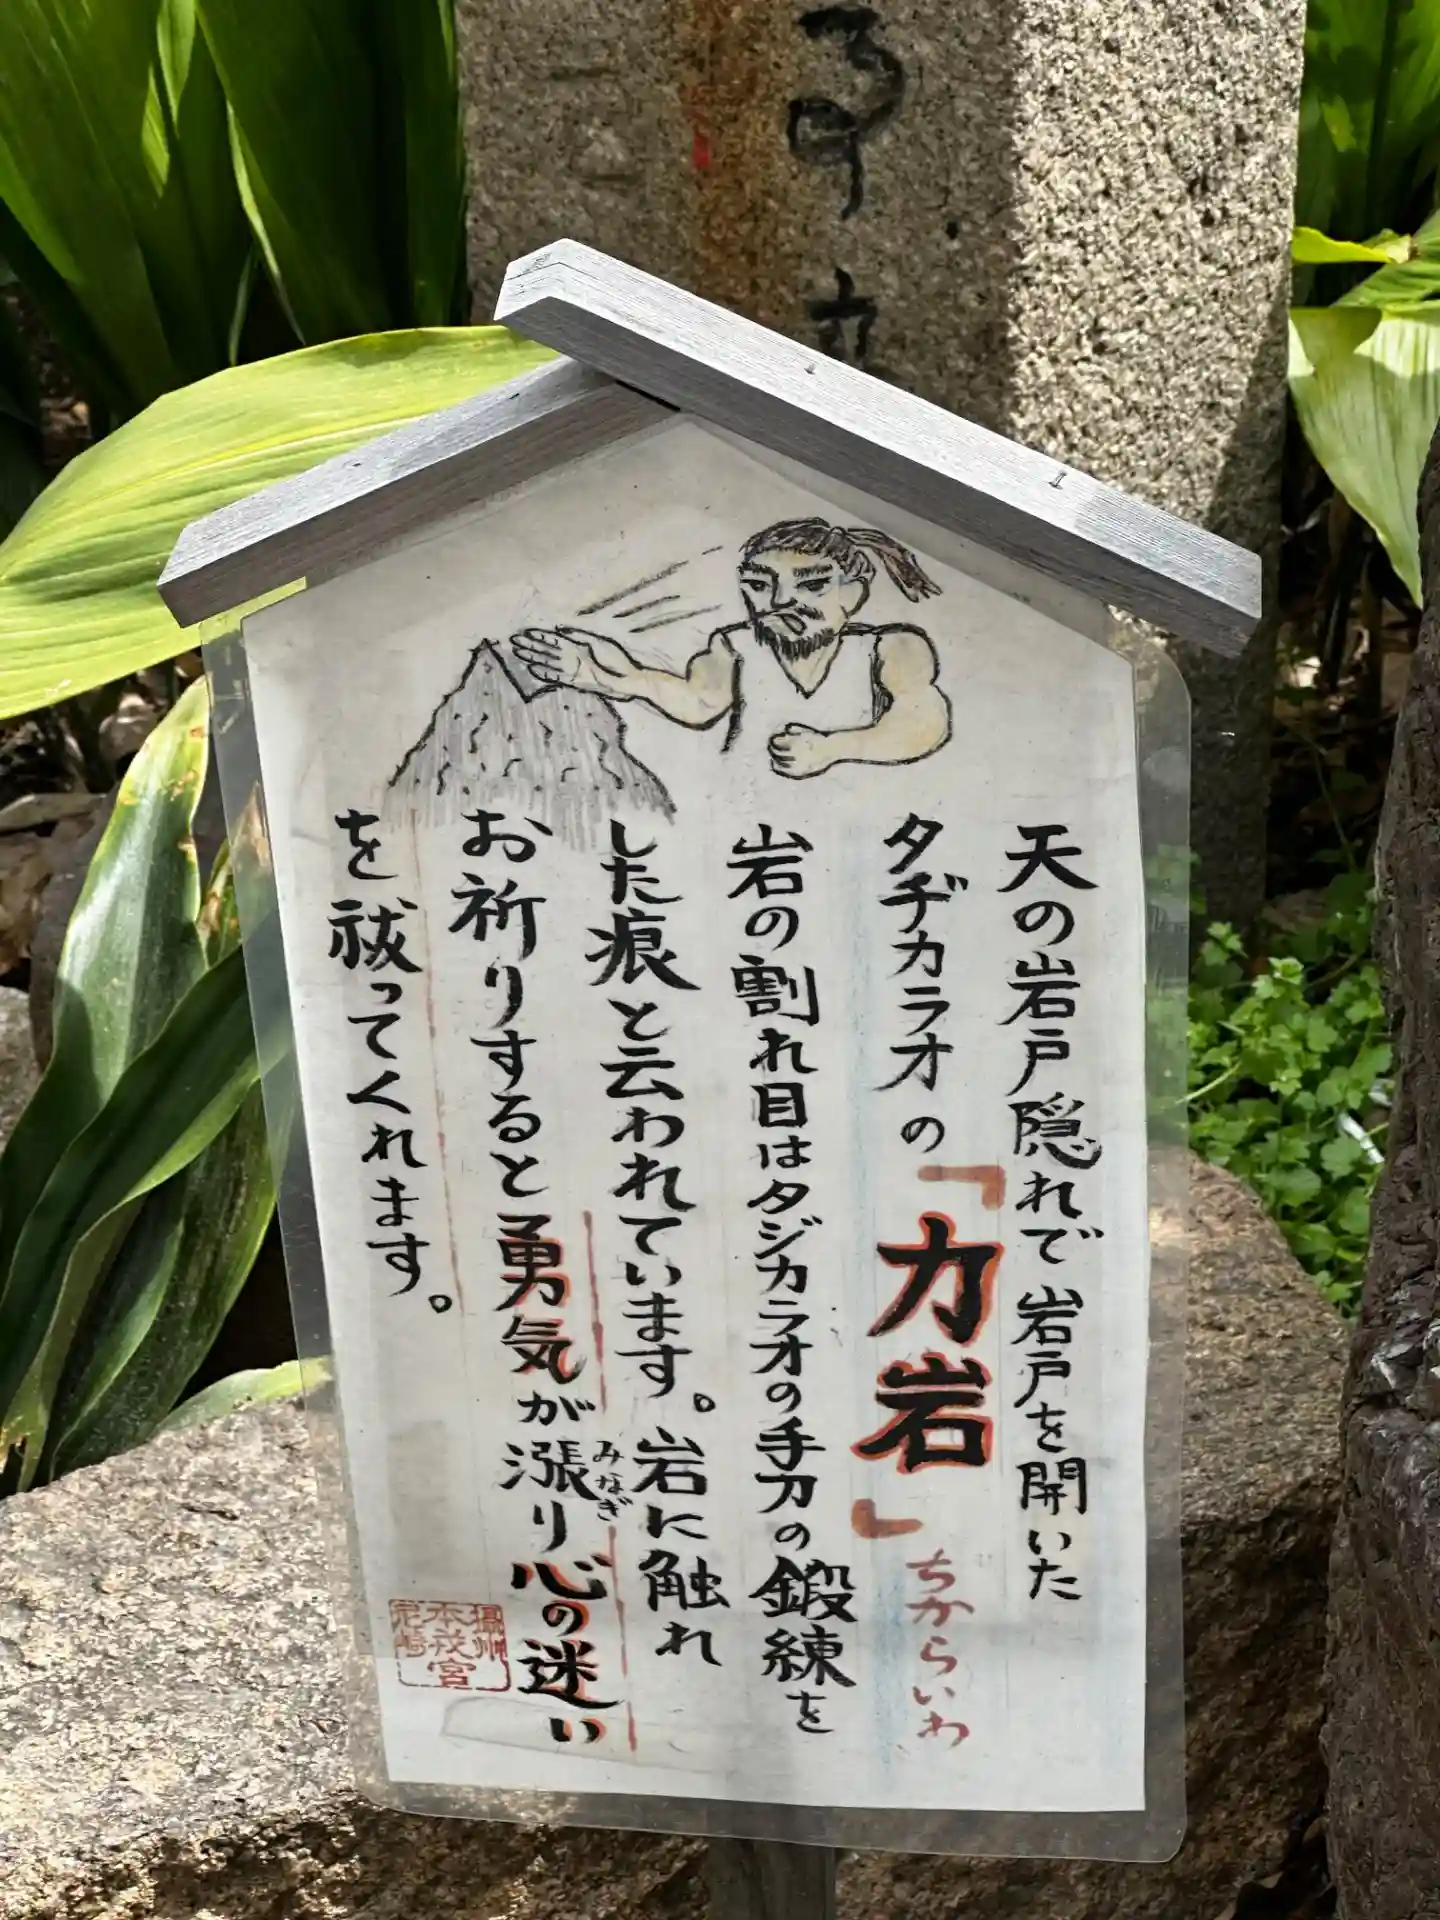 天の岩戸隠れで岩戸を開いた
タヂカラオの「力岩」ちからいわ
岩の割れ目はタジカラオの手刀の鍛練を
した痕と云われています。岩に触れ
お祈りすると勇気が漲り心の迷い
みなぎ
を祓ってくれます。
摂州
本茂宮
尼崎